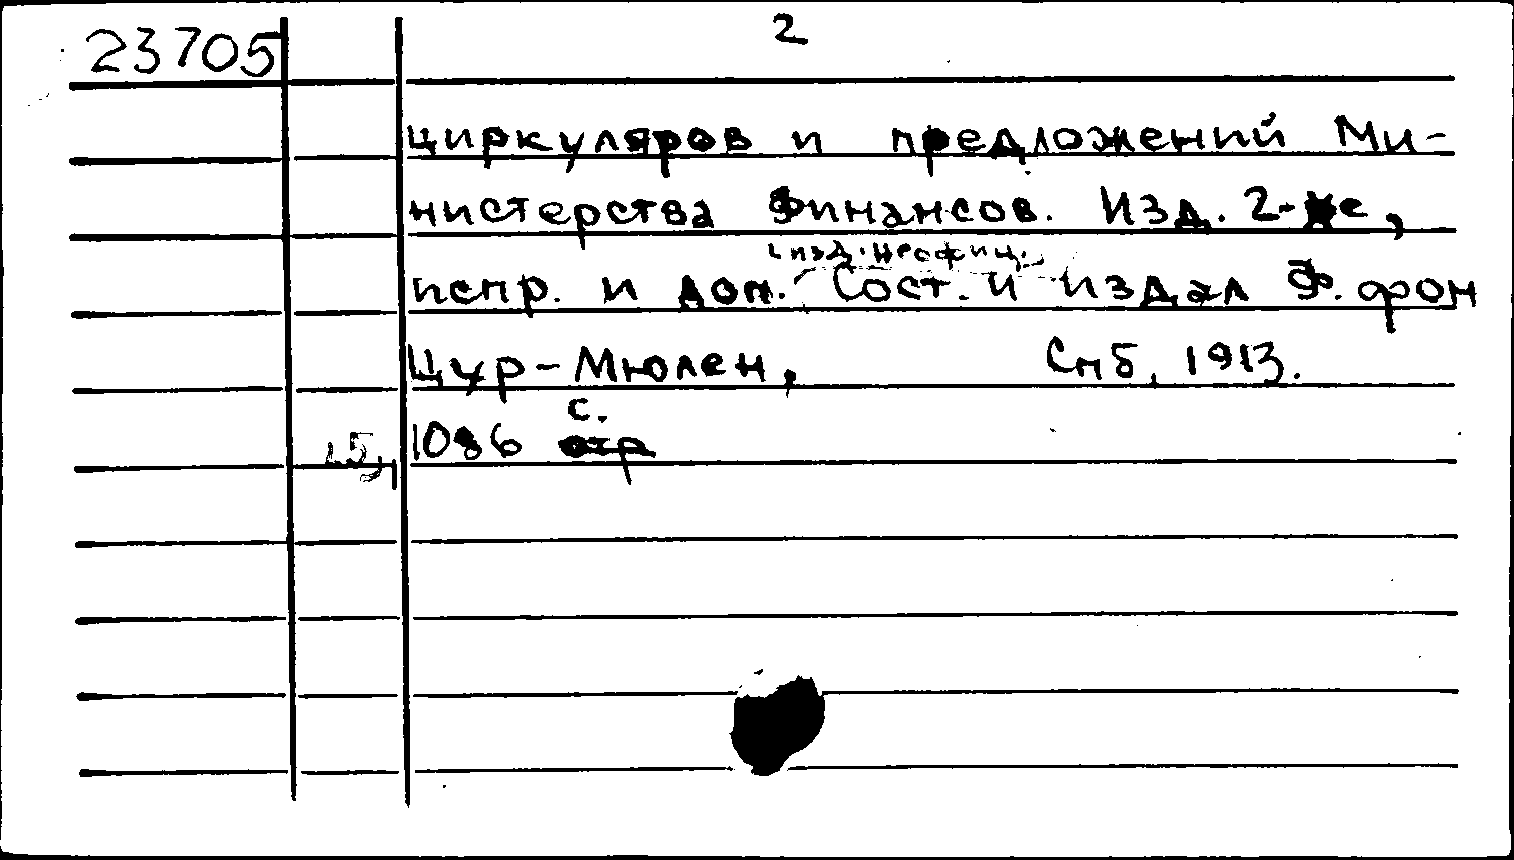 2
23705
циркуляров и предложений Ми-
нистерства Финансов. Изд. 2-е,
изд. неофиц.
испр. и доп. Сост. и издал Ф. фон
Цур-Мюлен, Спб, 1913.
с.
15, 1086 стр